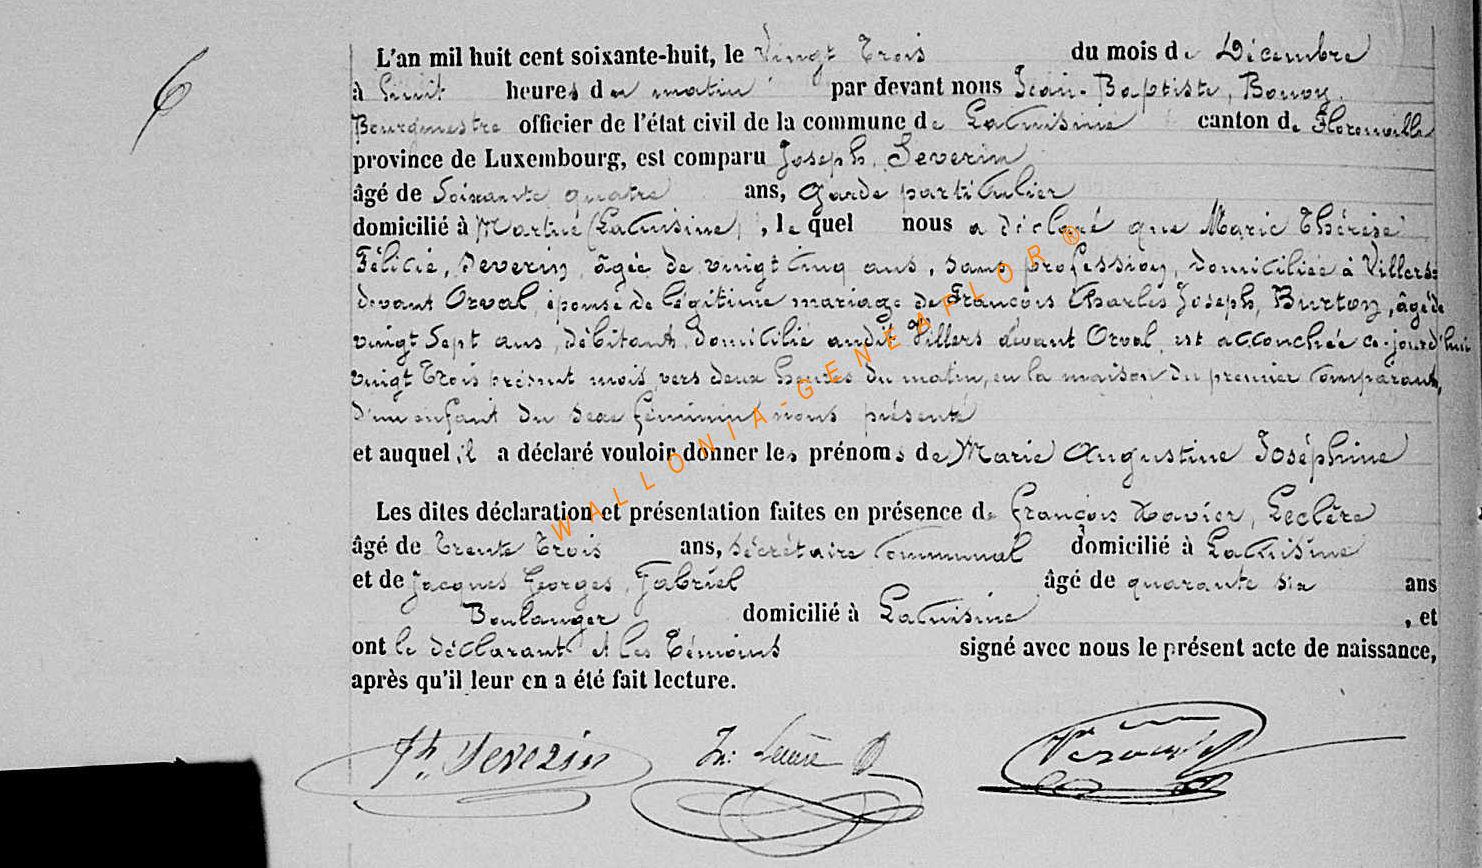 6
L'an mil huit cent soixante-huit, le Vingt Trois du mois de Décembre
à huit heures du matin par devant nous Jean-Baptiste, Bouvy,
Bourgmestre officier de l'état civil de la commune de Lacuisine canton de Florenville
province de Luxembourg, est comparu Joseph, Severin
âgé de Soixante quatre ans, Garde particulier
domicilié à Martué (Lacuisine), le quel nous a déclaré que Marie Thérèse
Félicie, Severin, âgée de vingt cinq ans, sans profession, domiciliée à Villers-
devant Orval, épouse de légitime mariage de François Charles Joseph, Burton, âgé de
vingt Sept ans, débitant, domicilié audit Villers devant Orval, est accouchée ce-jourd'hui
vingt Trois présent mois, vers deux heures du matin, en la maison du premier comparant,
d'un enfant du sexe féminin nous présenté
et auquel il a déclaré vouloir donner les prénoms de Marie Augustine Joséphine
Les dites déclaration et présentation faites en présence de François Xavier, Leclère
âgé de Trente Trois ans, Secrétaire Communal domicilié à Lacuisine
et de Jacques Georges, Gabriel âgé de quarante six ans
Boulanger domicilié à Lacuisine, et
ont le déclarant et les Témoins signé avec nous le présent acte de naissance,
après qu'il leur en a été fait lecture.
Jh Severin
WALLONIA-GENEAFLOR®